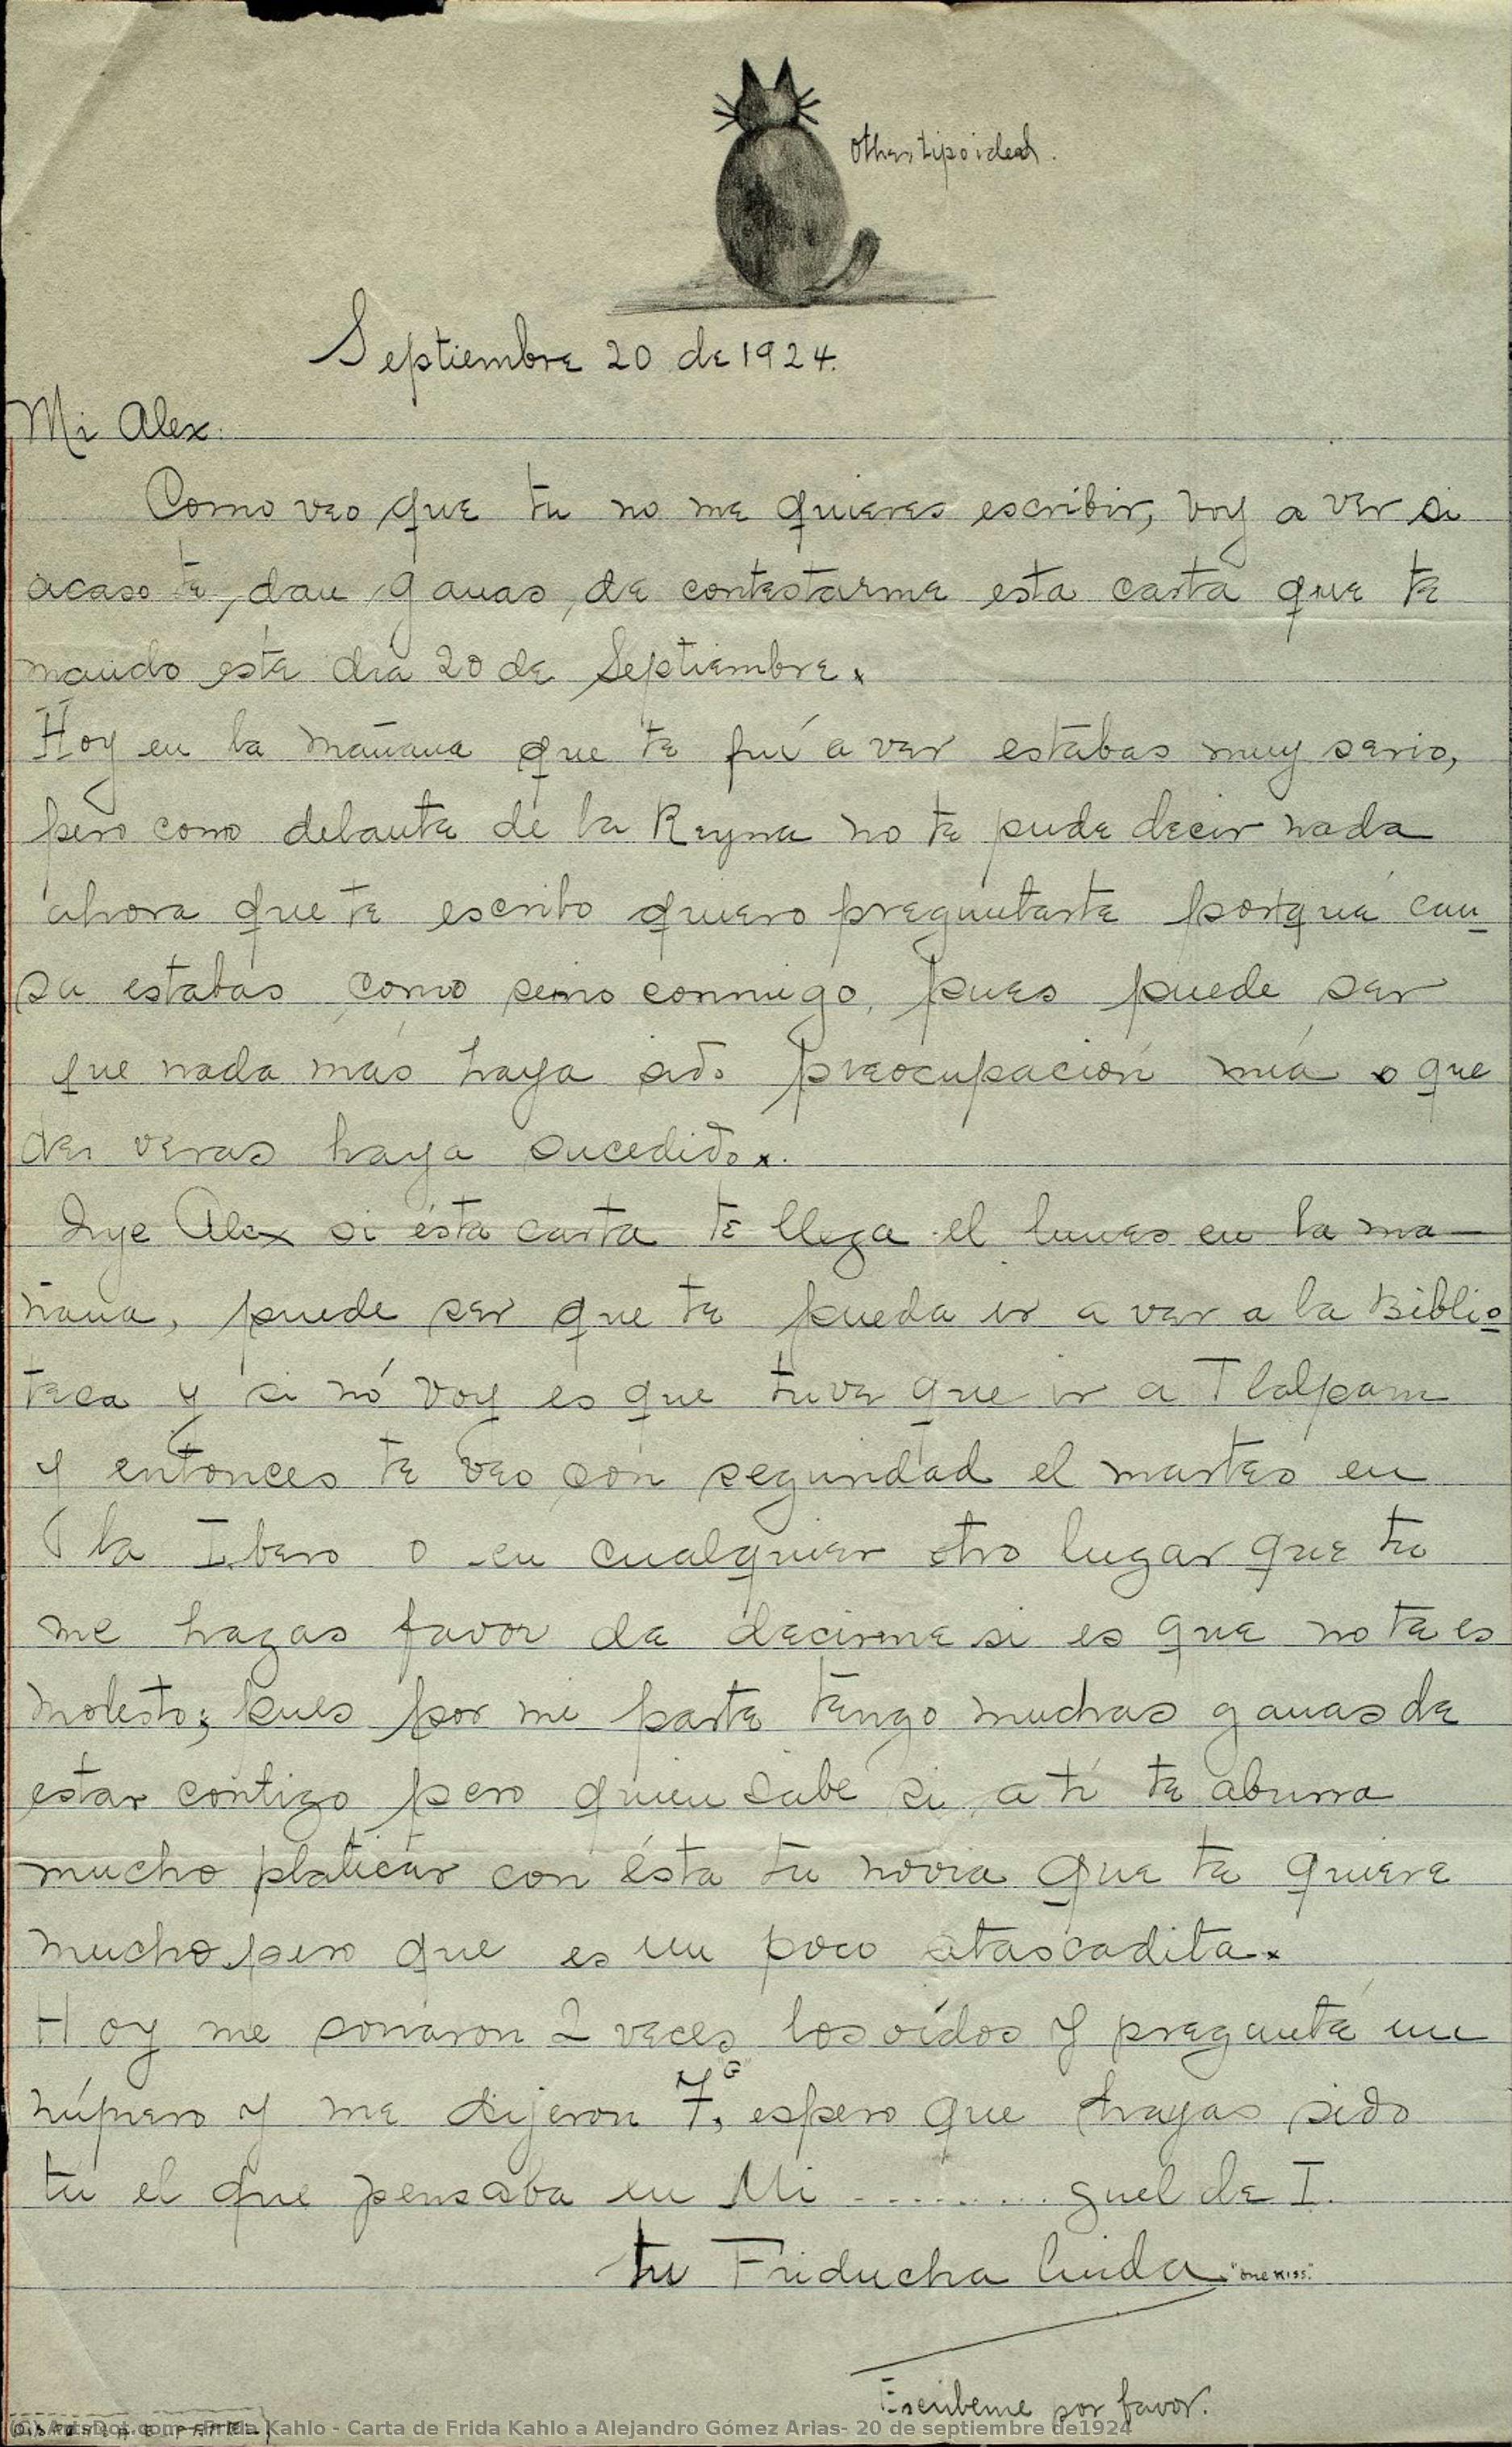 Other tipo ideal.
Septiembre 20 de 1924.
Mi Alex:
Como veo que tu no me quieres escribir, voy a ver si
acaso te dan ganas de contestarme esta carta que te
mando este día 20 de Septiembre.
Hoy en la mañana que te fuí a ver estabas muy serio,
pero como delante de la Reyna no te pude decir nada
ahora que te escribo quiero preguntarte porqué cau
sa estabas como serio conmigo, pues puede ser
que nada más haya sido preocupación mía o que
de veras haya sucedido.
Oye Alex si ésta carta te llega el lunes en la ma-
ñana, puede ser que te pueda ir a ver a la Biblio
teca y si nó voy es que tuve que ir a Tlalpam
y entonces te veo con seguridad el martes en
la Ibero o en cualquier otro lugar que tu
me hagas favor de decirme si es que no te es
molesto; pues por mi parte tengo muchas ganas de
estar contigo pero quien sabe si a tí te aburra
mucho platicar con ésta tu novia que te quiere
mucho pero que es un poco atascadita.
Hoy me sonaron 2 veces los oídos y pregunté un
número y me dijeron 7, "G" espero que hayas sido
tú el que pensaba en Mi ......... guel de I.
tu Friducha linda "one kiss."
Escribeme por favor.
(C) ArtsDot.com - Frida Kahlo - Carta de Frida Kahlo a Alejandro Gómez Arias- 20 de septiembre de1924